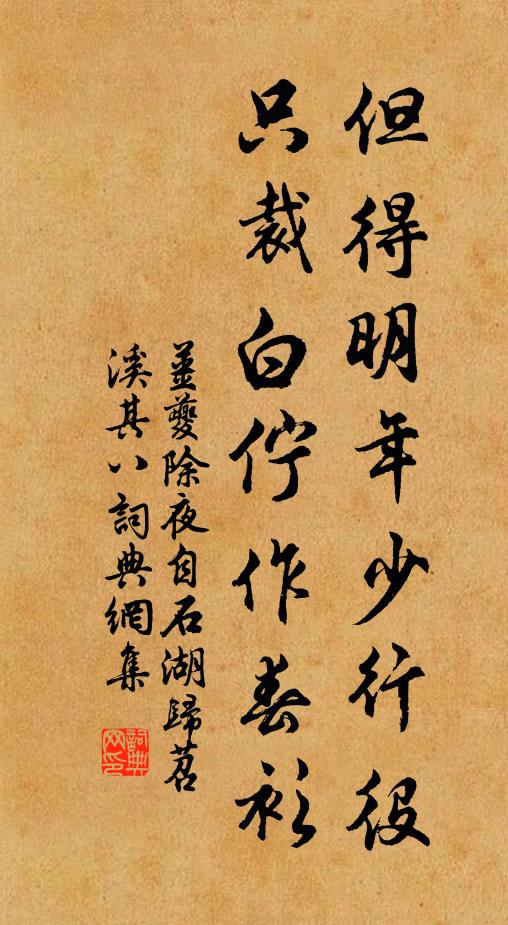 但得明年少行役
只裁白佇作春衫
姜夔除夜自石湖歸苕
溪其八詞典網集
詞典
网印